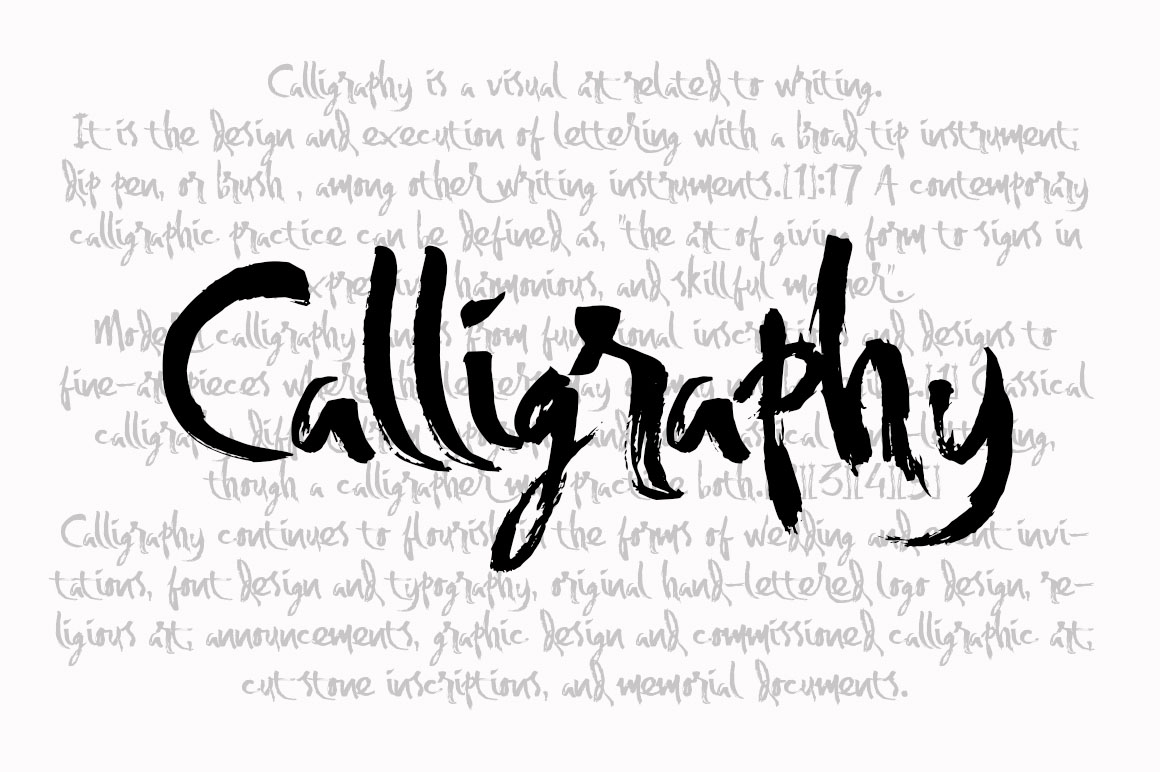 Calligraphy is a visual art related to writing.
It is the design and execution of lettering with a broad tip instrument,
dip pen, or brush , among other writing instruments.[1]:17 A contemporary
calligraphic practice can be defined as, "the art of giving form to signs in
expressive, harmonious, and skillful manner".
Calligraphy
Modern calligraphy ranges from functional inscriptions and designs to
fine-art pieces where the letters may or may [1] Classical
calligraphy
though a calligrapher may practice both.
Calligraphy continues to flourish in the forms of wedding and event invi-
tations, font design and typography, original hand-lettered logo design, re-
ligious art, announcements, graphic design and commissioned calligraphic art,
cut stone inscriptions, and memorial documents.